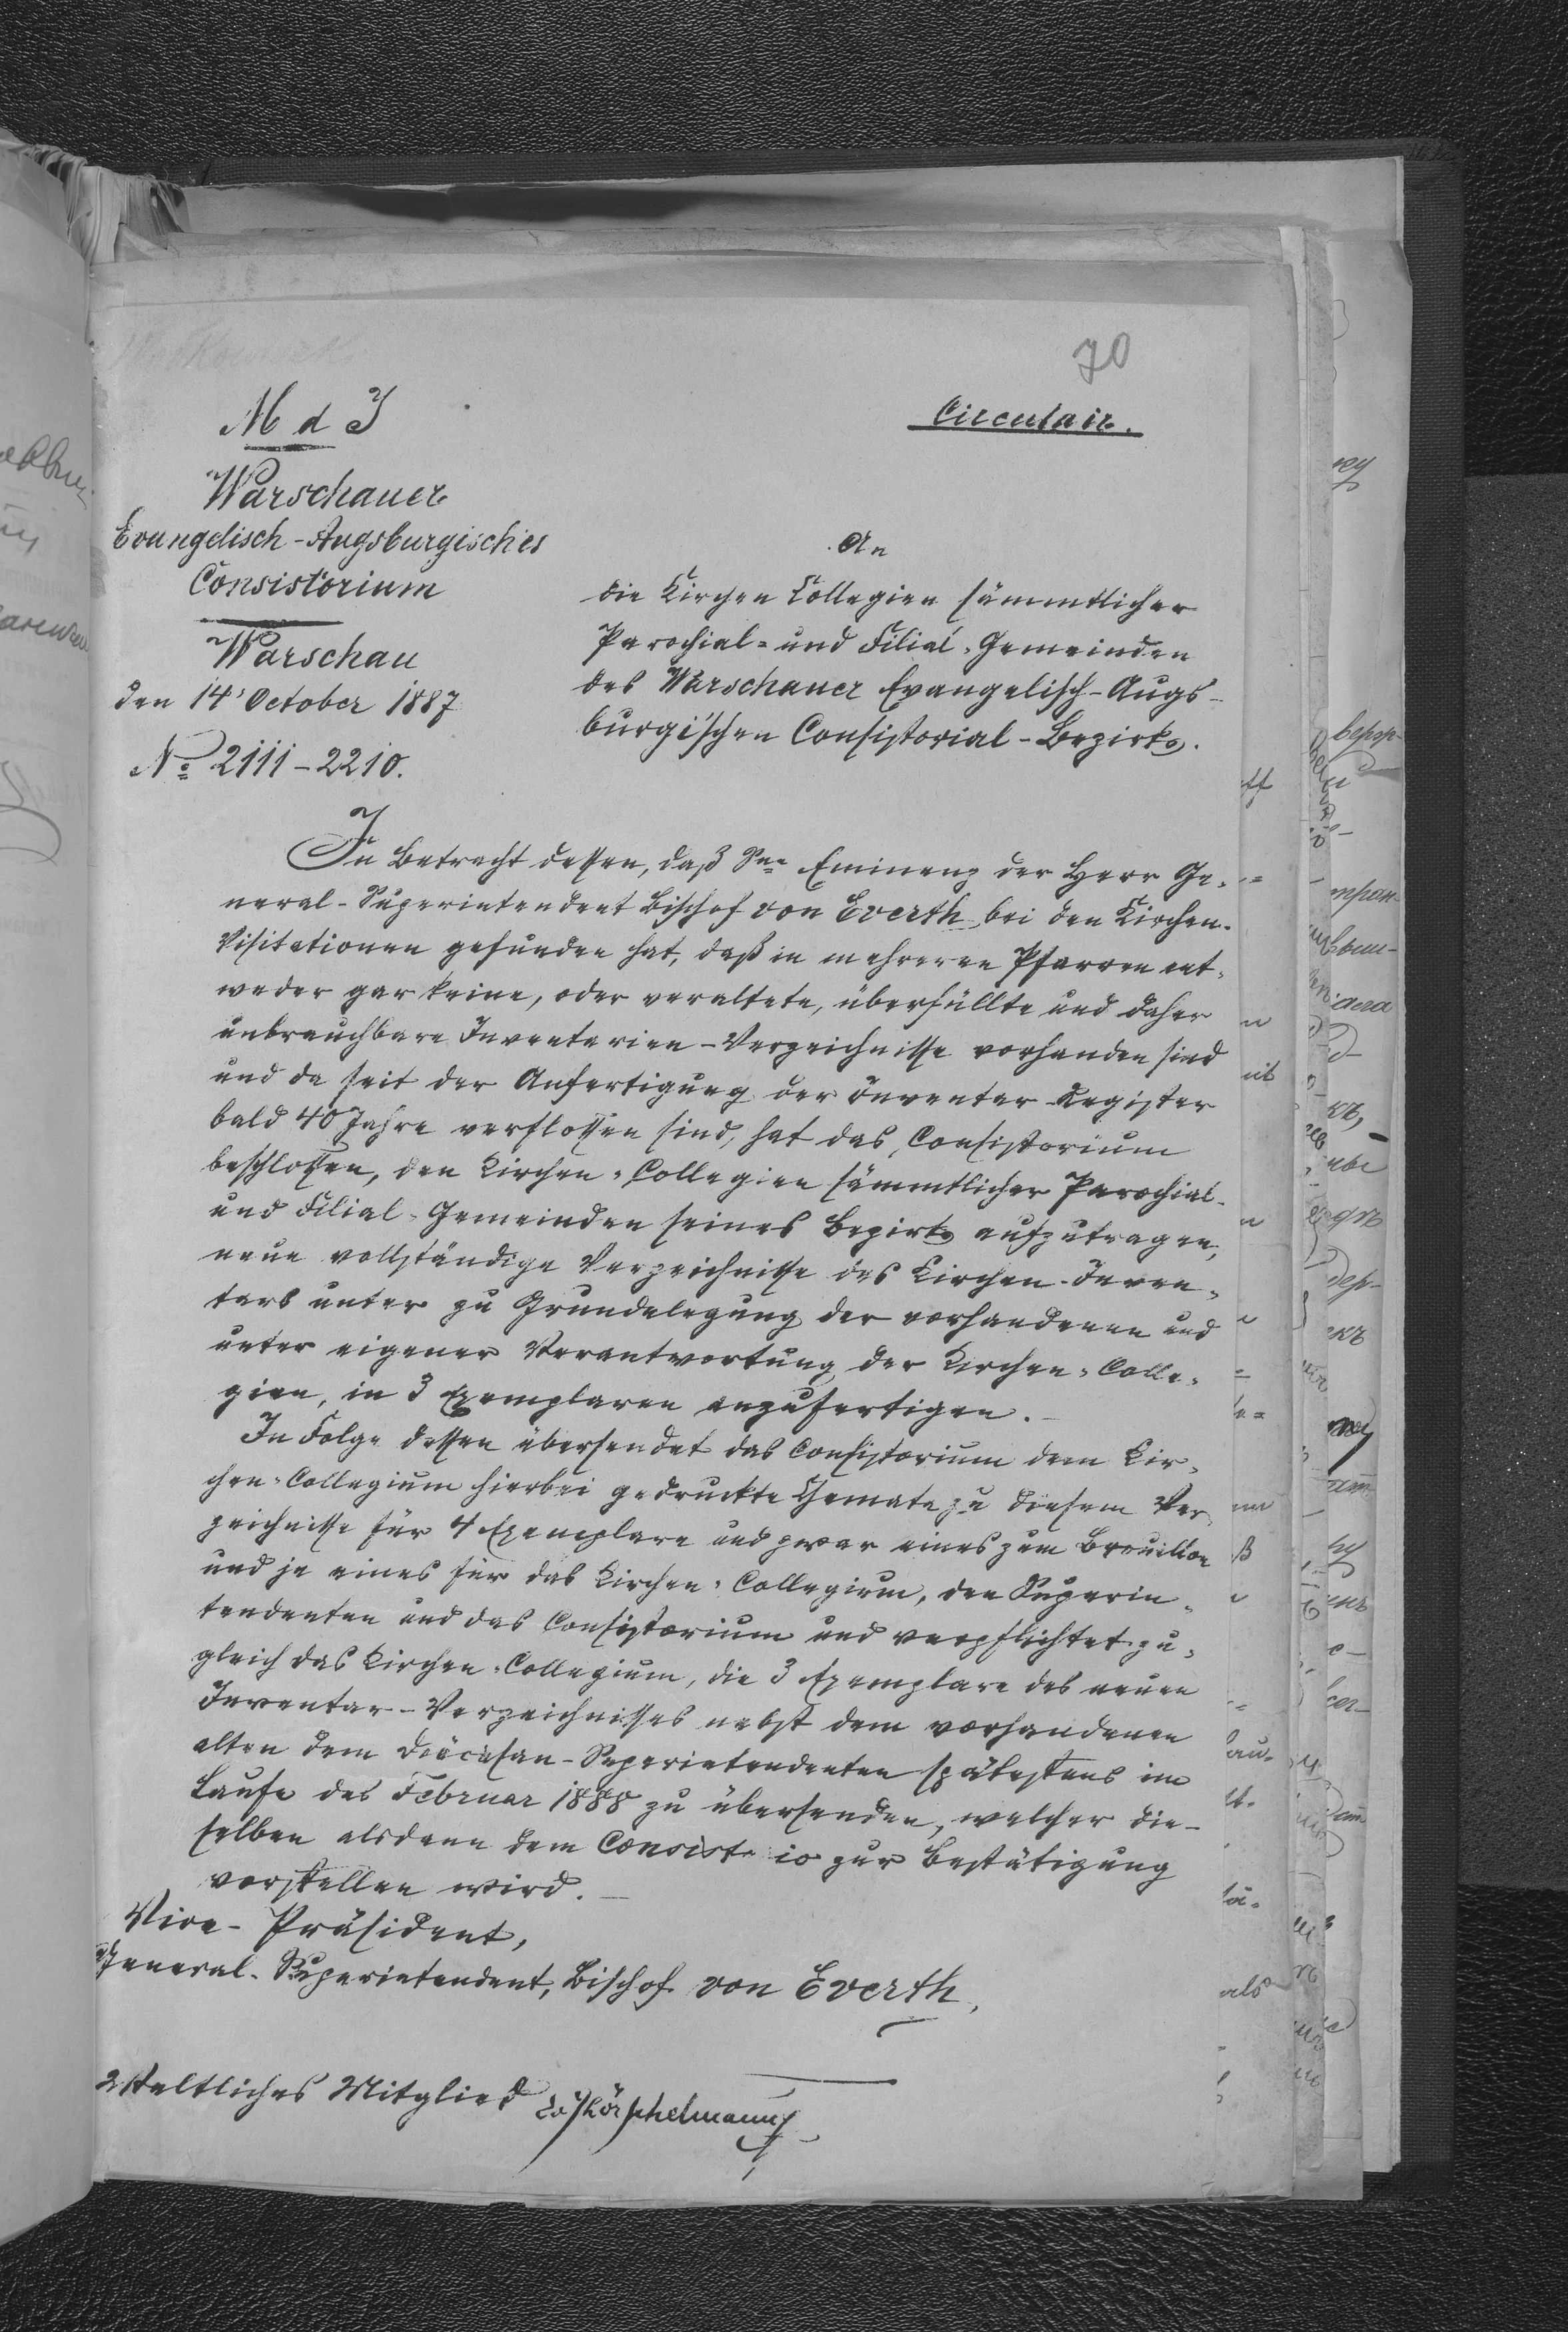 70
M d I
Circulair.
Warschauer
Evangelisch-Augsburgisches
Consistorium
Warschau
den 14' October 1887
No 2111-2210.
An
die Kirchen Collegien sämmtlicher
Parochial- und Filial-Gemeinden
des Warschauer Evangelisch-Augs-
burgischen Consistorial-Bezirks.
In Betracht dessen, daß Sne Eminenz der Herr Ge-
neral-Superintendent Bischof von Everth bei den Kirchen-
Visitationen gefunden hat, daß in mehreren Pfarren ent-
weder gar keine, oder veraltete, überfüllte und daher
unbrauchbare Inventarien-Verzeichnisse vorhanden sind
und da seit der Anfertigung der Inventar-Register
bald 40 Jahre verflossen sind, hat das Consistorium
beschlossen, den Kirchen-Collegien sämmtlicher Parochial-
und Filial-Gemeinden seines Bezirks aufzutragen,
neue vollständige Verzeichnisse des Kirchen-Inven-
tars unter zu Grundelegung der vorhandenen und
unter eigener Verantwortung der Kirchen-Colle-
gien, in 3 Exemplaren anzufertigen.-
In Folge dessen übersendet das Consistorium dem Kir-
chen-Collegium hierbei gedruckte Schemata zu diesem Ver-
zeichnisse für 4 Exemplare und zwar eines zum Brouillon
und je eines für das Kirchen-Collegium, den Superin-
tendenten und das Consistorium und verpflichtet zu-
gleich das Kirchen-Collegium, die 3 Exemplare des neuen
Inventar-Verzeichnisses nebst dem vorhandenen
alten dem Diöcesan-Superintendenten spätestens im
Laufe des Februar 1888 zu übersenden, welcher die-
selben alsdann dem Consistorio zur Bestätigung
vorstellen wird.-
Vice-Präsident,
General-Superintendent, Bischof von Everth,
Weltliches Mitglied